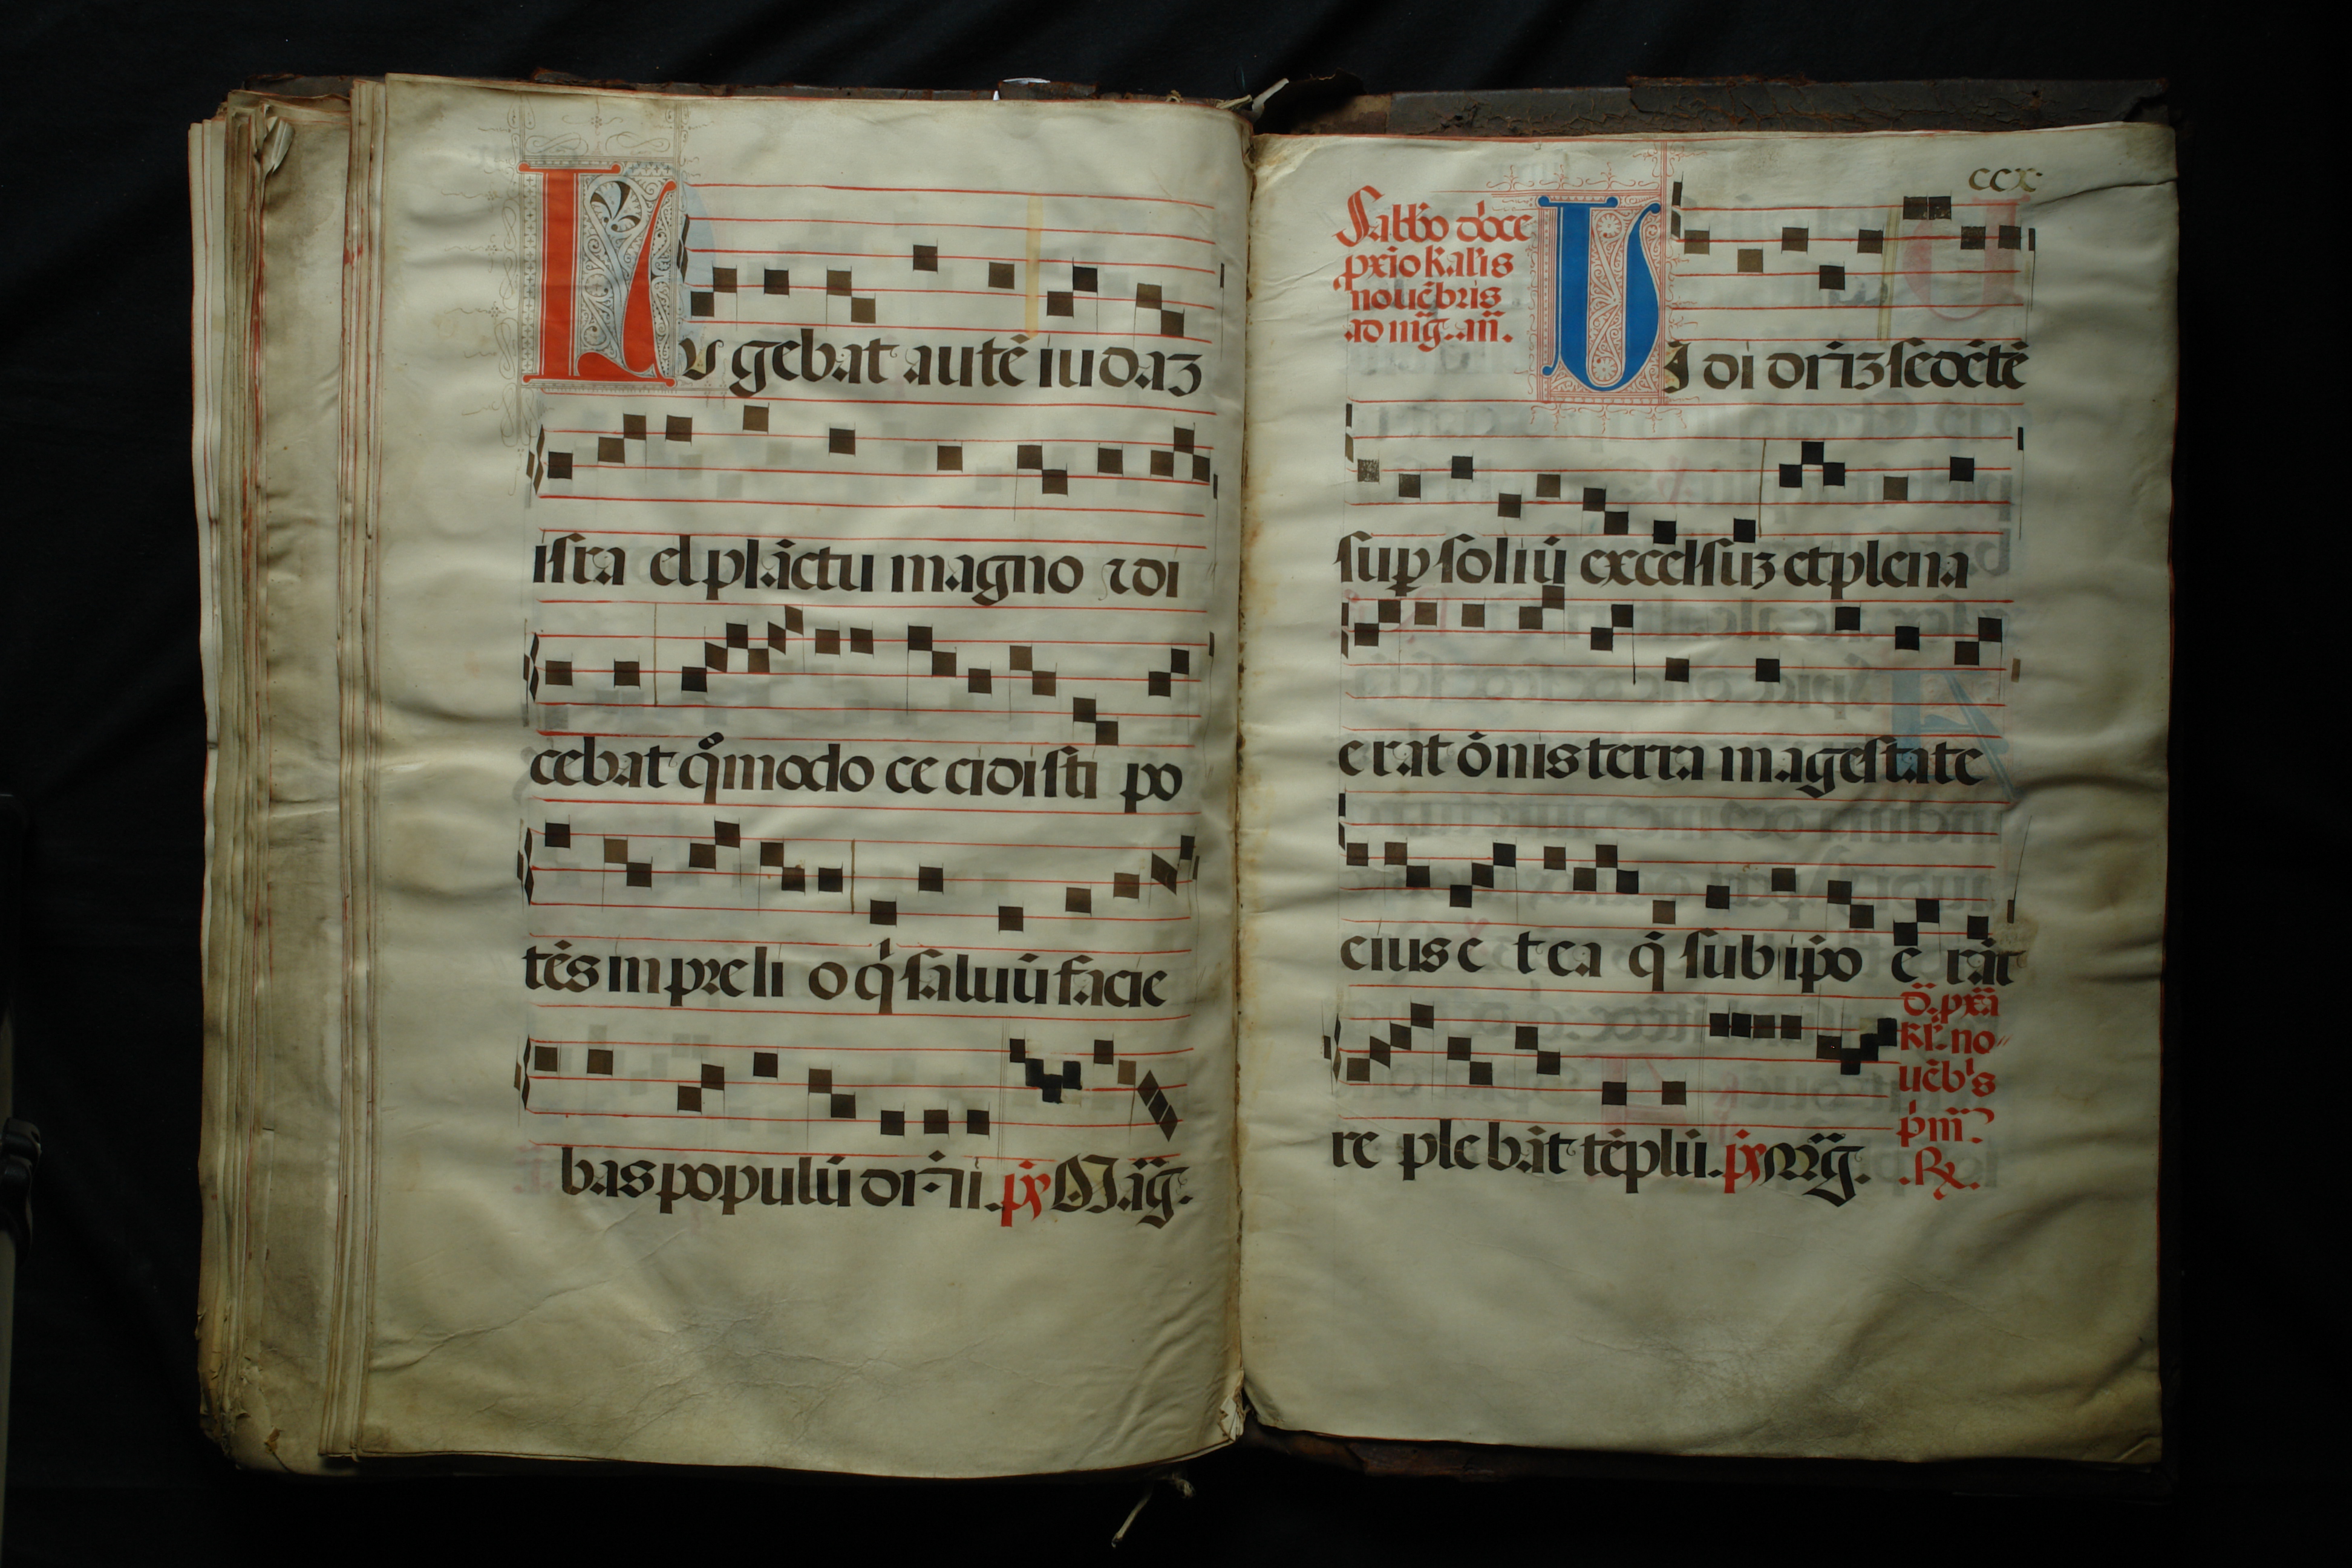 Lu gebat autē iudaʒ
isra el plāctu magno ⁊ di
cebat qͦmodo ce cidisti po
tēs in preli o q̇ saluū facie
bas populū dn̄i. p̄s Mag̈.
ccx
Sabb̄o
nouēbris
Vi di dn̄ʒ sedētē
suꝑ soliū excelsuʒ et plena
erat ōnis terra magestate
eius e t ea q̄ sub ip̄o e rāt
re ple bāt tēplū. p̄s Mg̈.
kl̄. no-
uēbˡs
p̄m̄.
.℞.